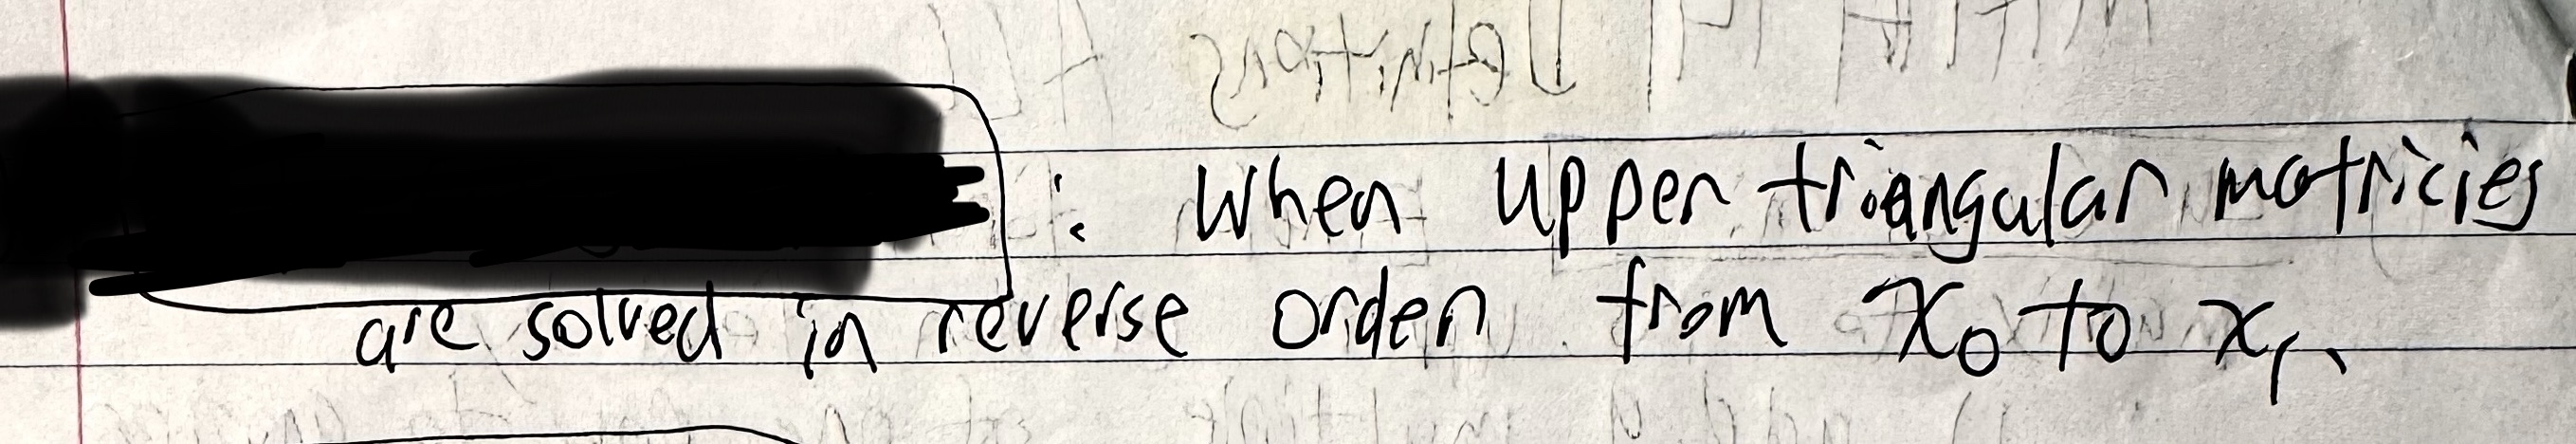 : When upper triangular matricies
are solved in reverse order from x₀ to x₁.